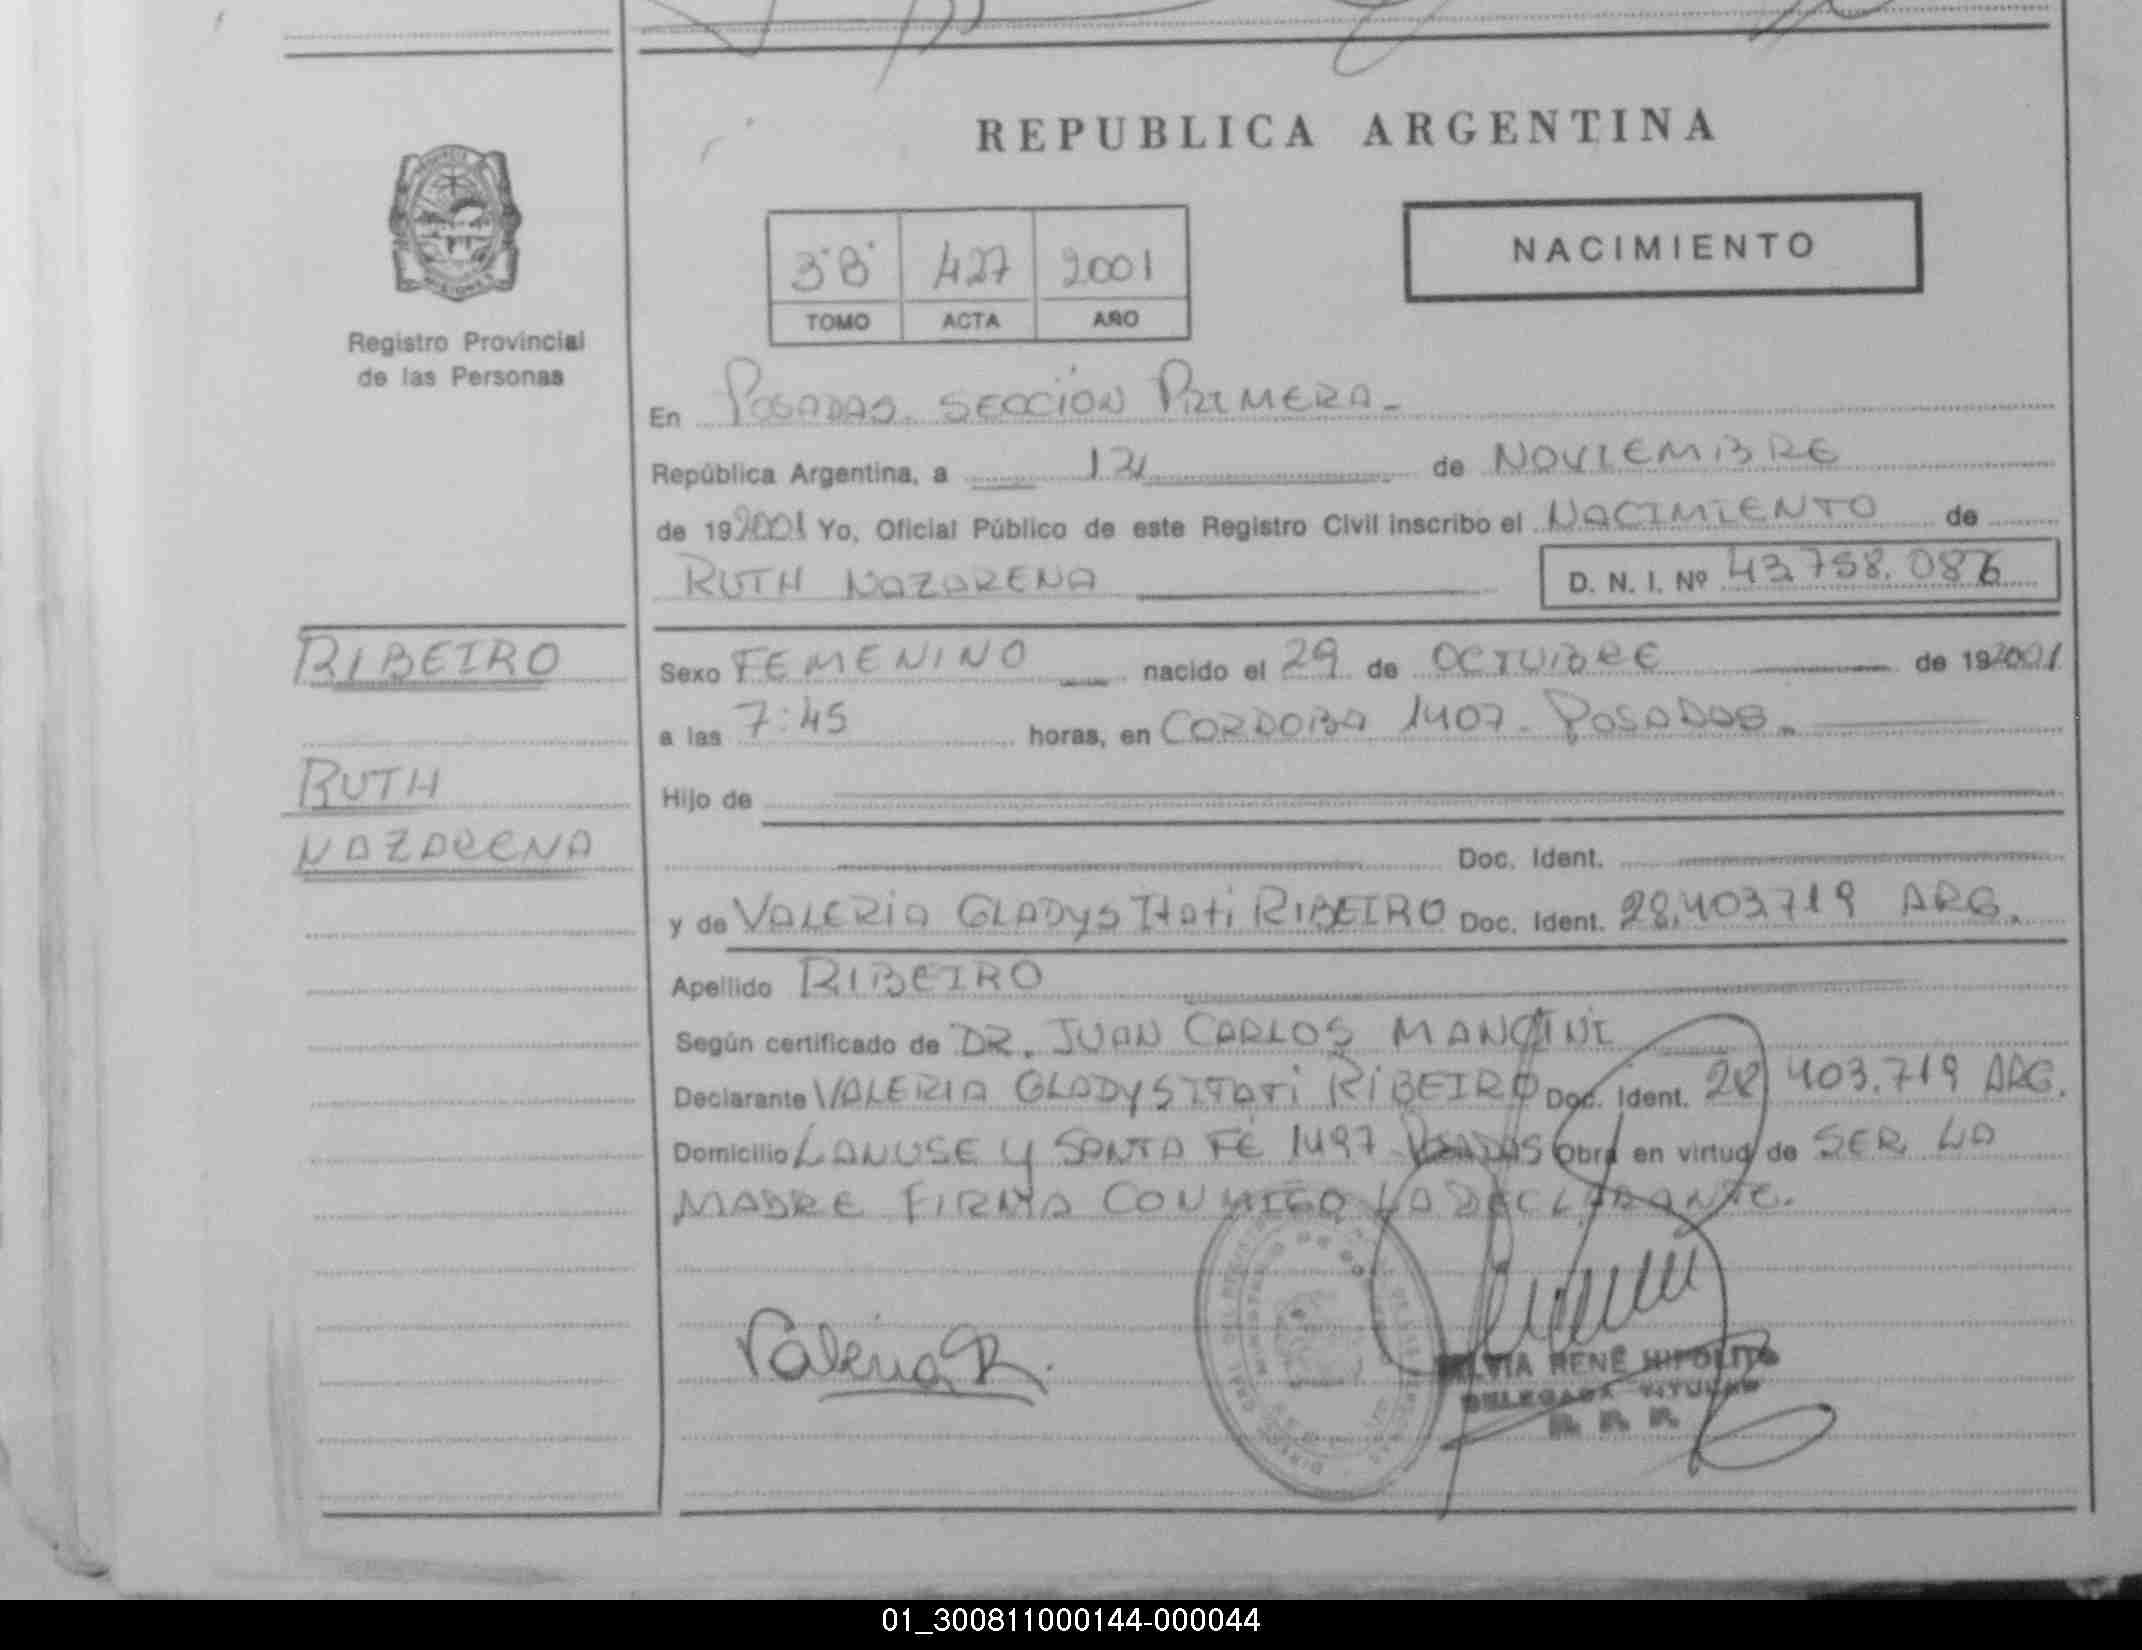 REPUBLICA ARGENTINA
NACIMIENTO
3°B° 427 2001
TOMO ACTA AÑO
Registro Provincial
de las Personas
En POSADAS. SECCIÓN PRIMERA.-
República Argentina, a 12 de NOVIEMBRE
de 192001 Yo, Oficial Público de este Registro Civil inscribo el NACIMIENTO de
RUTH NAZARENA D. N. I. Nº 43.758.086
RIBEIRO
RUTH
NAZARENA
Sexo FEMENINO nacido el 29 de OCTUBRE de 192001
a las 7:45 horas, en CORDOBA 1407 - POSADAS.-
Hijo de
Doc. Ident.
y de VALERIA GLADYS ITATI RIBEIRO Doc. Ident. 28.403.719 ARG.
Apellido RIBEIRO
Según certificado de DR. JUAN CARLOS MANCINI
Declarante VALERIA GLADYS ITATI RIBEIRO Doc. Ident. 28 403.719 ARG.
Domicilio LANUSE Y SANTA FÉ 1497 POSADAS Obra en virtud de SER LA
MADRE FIRMA CONMIGO LA DECLARANTE.
Valeria R.
SILVIA RENÉ HIPOLITO
DELEGADA TITULAR
R. P. P.
01_300811000144-000044